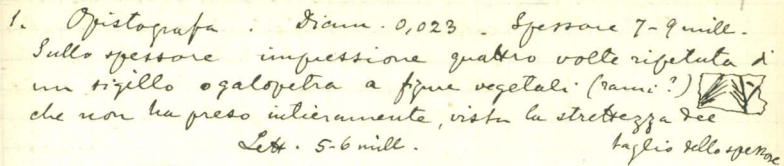 1. Opistografa. Diam. 0,023. Spessore 7-9 mill.
Sullo spessore impressione quattro volte ripetuta di
un sigillo o galopetra a figure vegetali (rami?)
che non ha preso intieramente, vista la strettezza del
taglio dello spessore
Lett. 5-6 mill.